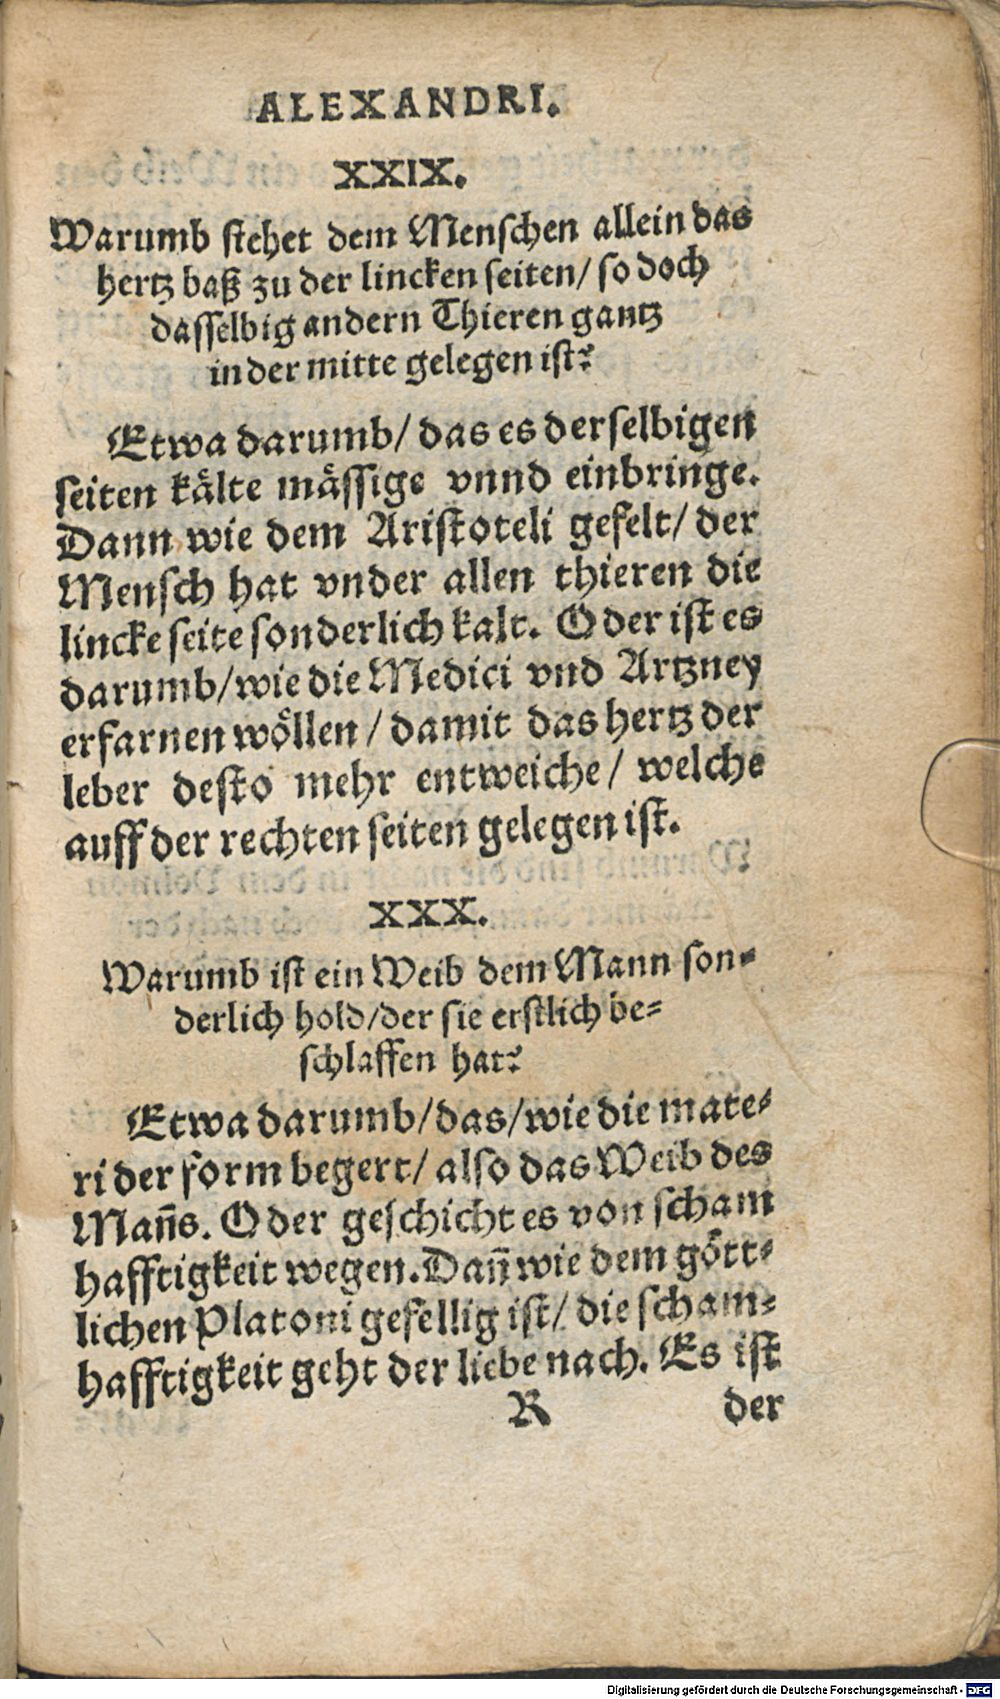 ALEXANDRI.
XXIX.
Warumb stehet dem Menschen allein das
hertz baß zu der lincken seiten/ so doch
dasselbig andern Thieren gantz
in der mitte gelegen ist?
Etwa darumb/ das es derselbigen
seiten kälte mässige vnnd einbringe.
Dann wie dem Aristoteli gefelt/ der
Mensch hat vnder allen thieren die
lincke seite sonderlich kalt. Oder ist es
darumb/ wie die Medici vnd Artzney
erfarnen wöllen / damit das hertz der
leber desto mehr entweiche/ welche
auff der rechten seiten gelegen ist.
XXX.
Warumb ist ein Weib dem Mann son-
derlich hold/ der sie erstlich be-
schlaffen hat?
Etwa darumb/ das/ wie die mate-
ri der form begert/ also das Weib des
Mañs. Oder geschicht es von scham
hafftigkeit wegen. Dañ wie dem gött-
lichen Platoni gefellig ist/ die scham-
hafftigkeit geht der liebe nach. Es ist
R der
Digitalisierung gefördert durch die Deutsche Forschungsgemeinschaft - DFG